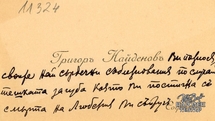 11324
Григоръ Найденовъ Ви поднося
своите най сърдечни съболезнования по случай
тежката загуба която Ви постигна съ
смъртьта на Любения Ви съпруг